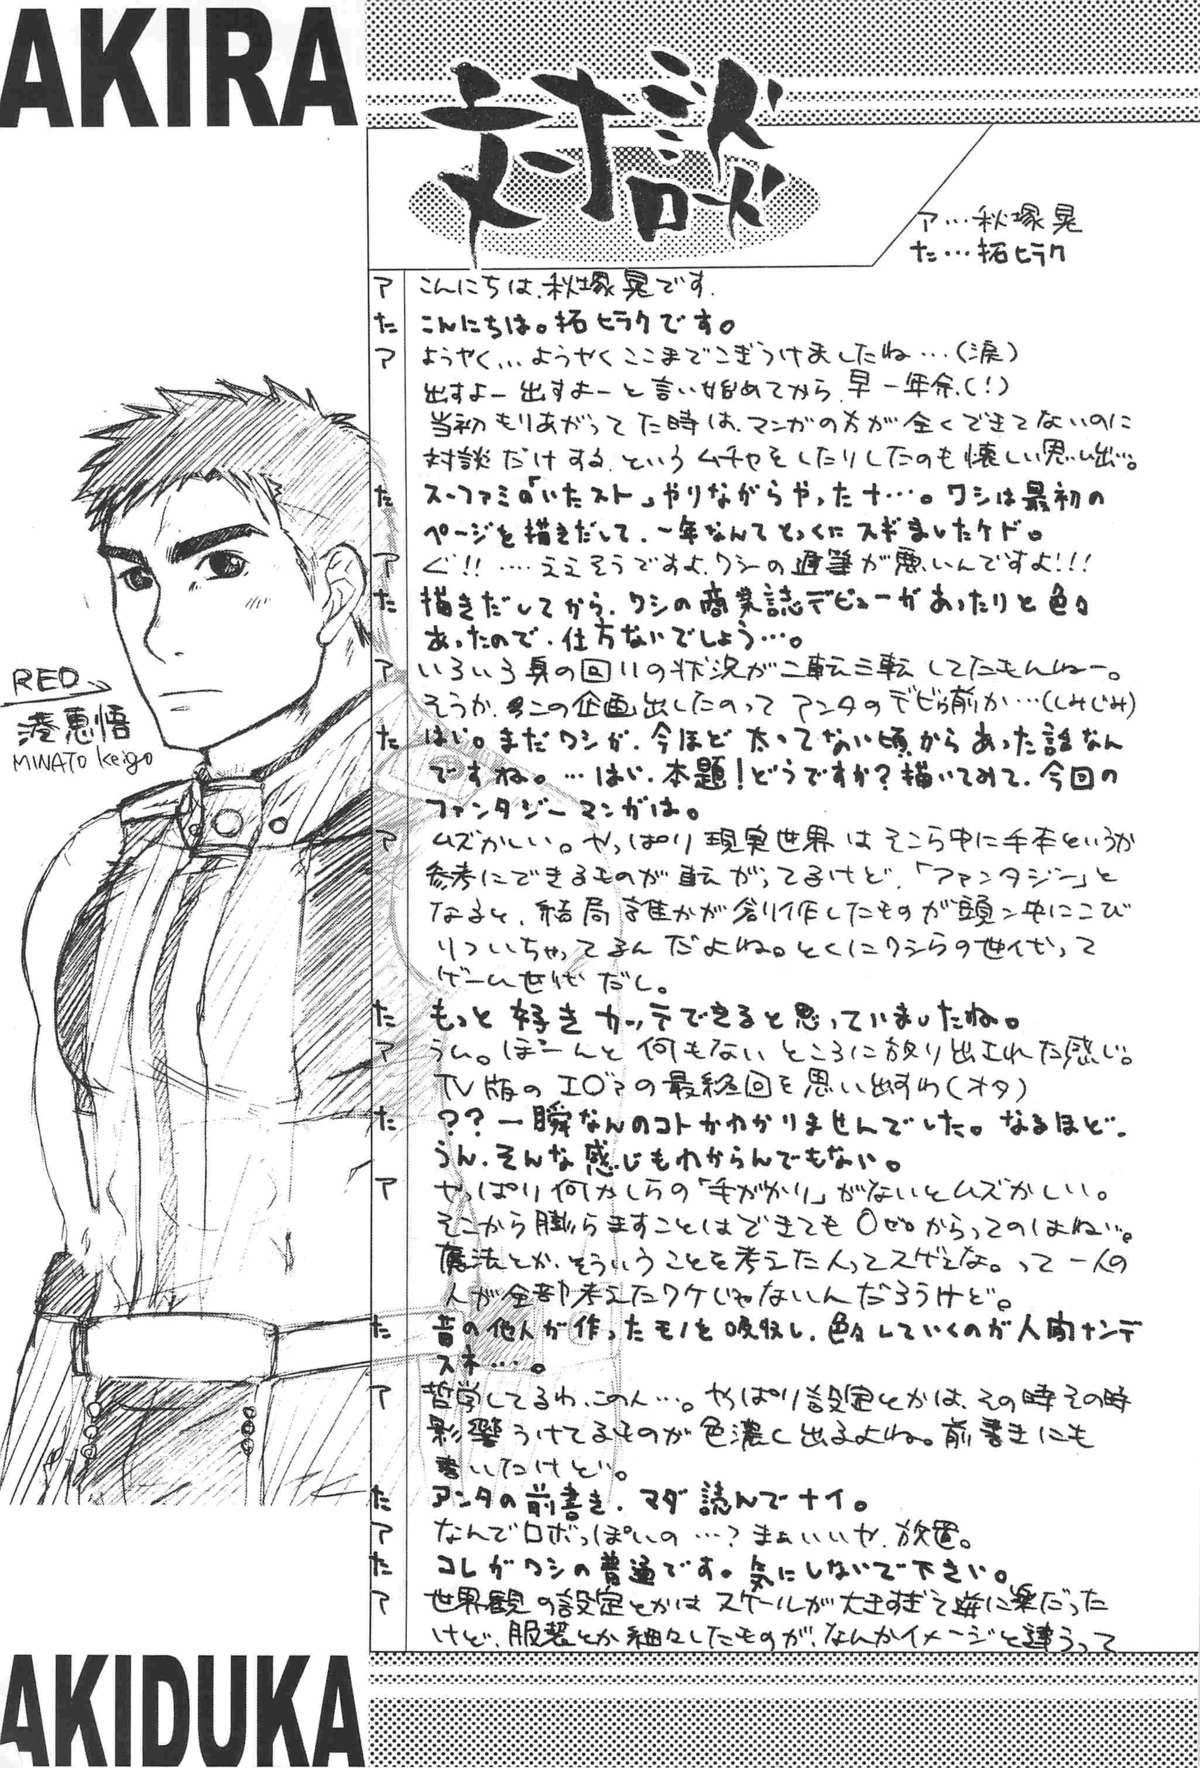 AKIRA
対談
ア…秋塚晃
た…拓ヒラク
ア こんにちは、秋塚晃です。
た こんにちは。拓ヒラクです。
ア ようやく…ようやくここまでこぎつけましたね…(涙)
出すよー出すよーと言い始めてから、早一年余、(!)
当初もりあがってた時は、マンガの方が全くできてないのに
対談だけする、というムチャをしたりしたのも懐しい思い出。
た スーファミの「いたスト」やりながらやったナ…。ワシは最初の
ページを描きだして、一年なんてとっくにスギましたケド。
ア ぐ!!…ええそうですよ、ワシの遅筆が悪いんですよ!!!
た 描きだしてから、ワシの商業誌デビューがあったりと色々
あったので、仕方ないでしょう…。
ア いろいろ身の回りの状況が二転三転してたもんねー。
そうか、この企画出したのってアンタのデビュー前か…(しみじみ)
た はい。まだワシが、今ほど太ってない頃からあった話なん
ですね。…はい、本題!どうですか?描いてみて、今回の
ファンタジーマンガは。
ア ムズかしい。やっぱり現実世界はそこら中に手本というか
参考にできるものが転がってるけど、「ファンタジー」と
なると、結局誰かが創作したものが頭ン中にこび
りついちゃってるんだよね。とくにワシらの世代って
ゲーム世代だし。
た もっと好きカッテできると思っていましたね。
ア うム。ぽーんと何もないところに放り出された感じ。
TV版のエヴァの最終回を思い出すわ(オタ)
た ??一瞬なんのコトかわかりませんでした。なるほど、
うん、そんな感じもわからんでもない。
ア やっぱり何かしらの「手がかり」がないとムズかしい。
そこから膨らますことはできても0ゼロからってのはねぃ。
魔法とか、そういうことを考えた人ってスゲェな。って一人の
人が全部考えたワケじゃないんだろうけど。
た 昔の他人が作ったモノを吸収し、色々していくのが人間ナンデ
スネ…。
ア 哲学してるわ、この人…。やっぱり設定とかは、その時その時
影響うけてるものが色濃く出るよね。前書きにも
書いたけど。
た アンタの前書き、マダ読んでナイ。
ア なんでロボっぽいの…?まぁいいや、放置。
た コレがワシの普通です。気にしないで下さい。
ア 世界観の設定とかはスケールが大きすぎて逆に楽だった
けど、服装とか細々したものが、なんかイメージと違うって
RED
湊恵悟
MINATO Keigo
AKIDUKA